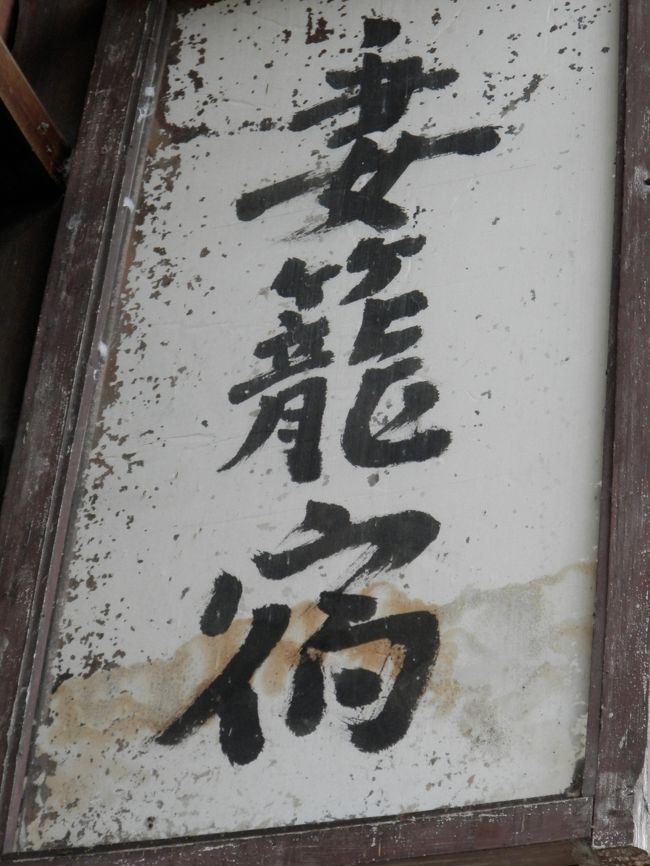 妻籠宿